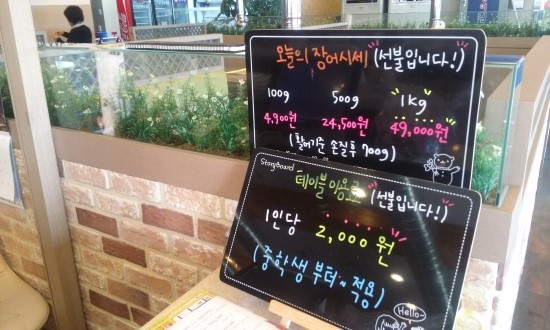 오늘의 장어시세 (선불입니다!)
100g 500g 1kg
4,900원 24,500원 49,000원
(활어기준 손질후 700g)
StoryBoard
테이블 이용료 (선불입니다!)
1인당 2,000원
(중학생 부터~ 적용)
Hello~